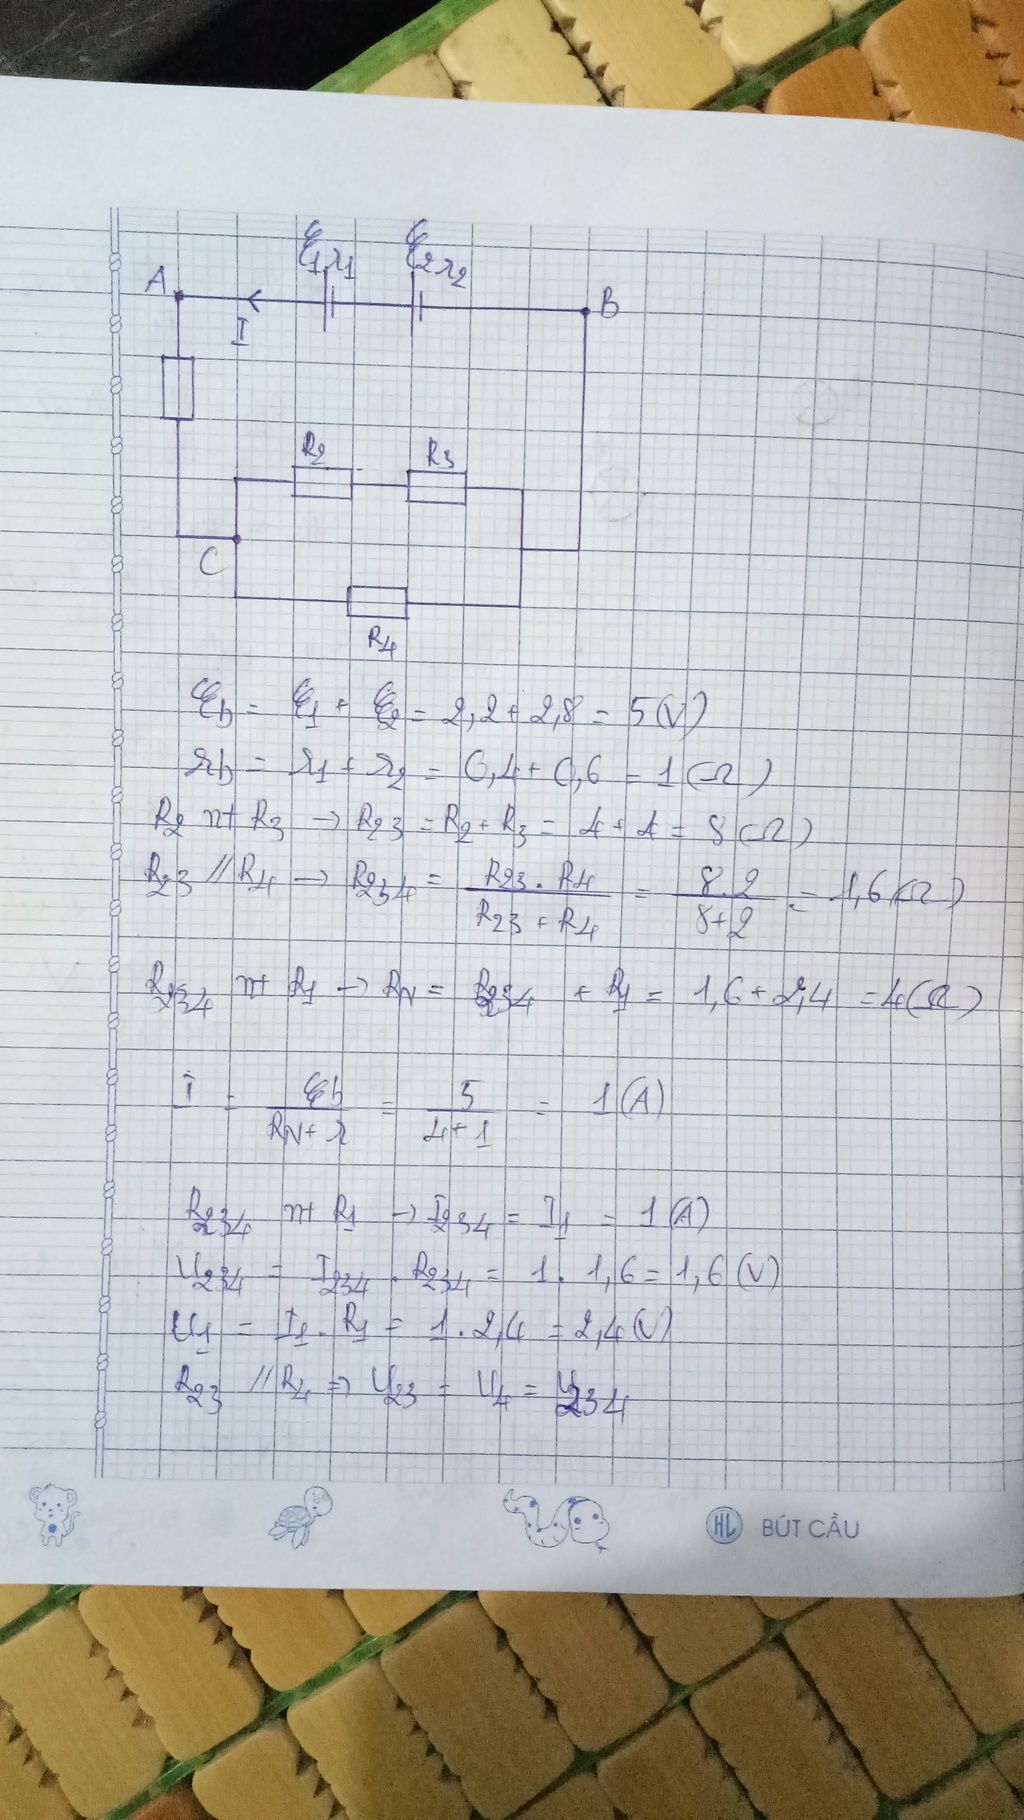 ℰ1, r1 ℰ2, r2
A
B
I
R2 R3
C
R4
ℰb = ℰ1 + ℰ2 = 2,2 + 2,8 = 5 (V)
rb = r1 + r2 = 0,4 + 0,6 = 1 (Ω)
R2 nt R3 → R23 = R2 + R3 = 4 + 4 = 8 (Ω)
R23 // R4 → R234 = R23 . R4 / R23 + R4 = 8.2 / 8+2 = 1,6 (Ω)
R234 nt R1 → RN = R234 + R1 = 1,6 + 2,4 = 4 (Ω)
I = ℰb / RN + r = 5 / 4+1 = 1 (A)
R234 nt R1 → I234 = I1 = 1 (A)
U234 = I234 . R234 = 1 . 1,6 = 1,6 (V)
U1 = I1 . R1 = 1 . 2,4 = 2,4 (V)
R23 // R4 ⇒ U23 = U4 = U234
HL BÚT CẦU